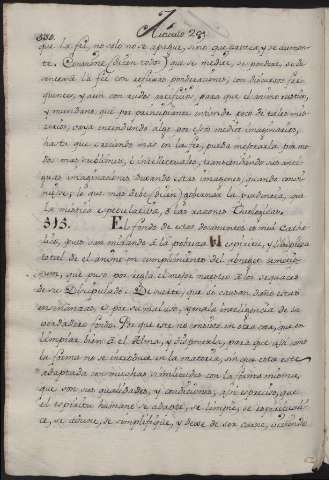 330. Artículo 28.
que la fee, no solo no se apague, sino que parezca, y se aumen-
te. Conviene (dicen todos) que se medite, se pondere, se de
materia la fee con ponderaciones, con discursos fre-
quentes, y aun con rudos artificios, para que el animo rustico,
y mundano, que por principiante entiende poco de tales mis-
terios, vaya entendiendo algo por esos medios imaginarios,
hasta que creciendo mas en la fee, pueda mejorarla por me-
dios mas sublimes, é intelectuales, transcendiendo sus anti-
guas imaginaciones, y dexando estas imagenes, quando convi-
niese, y lo que mas debe (dicen) gobernar la prudencia, que
la mistica especulativa, ó las razones Theologicas.
313. El fondo de estos documentos es mui Catho-
lico, pues van mirando á la pobreza del espiritu, y limpieza
total de el animo en cumplimiento del abneget semetip-
sum, que puso por regla el mejor maestro á los sequaces
de su Discipulado. De suerte, que si causan daño estas
enseñanzas, es por su mal uso, y mala inteligencia de su
verdadero fondo. Porque este no consiste en otra cosa, que en
limpiar bien á el Alma, y disponerla, para que asi como
la forma no se introduce en la materia, sin que esta este
adaptada con muchas similitudes con la forma misma,
que son sus qualidades, y condiciones, asi es preciso, que
el espiritu humano se adapte, se limpie, se espirituali-
ce, se adune, se simplifique, y dexe de ser carne, uniendo